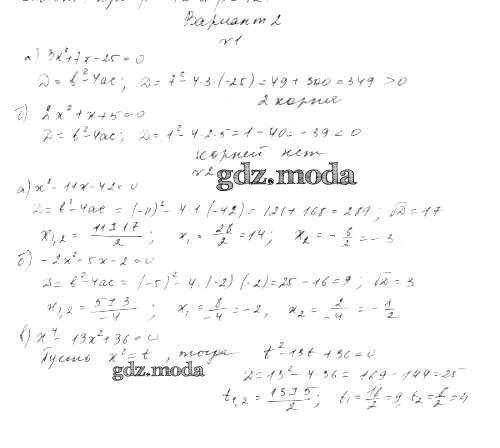 Вариант 2
№1
а) 3x²+7x-25=0
D = b²-4ac; D = 7²-4·3·(-25) = 49+300 = 349 > 0
2 корня
б) 2x²+x+5=0
D = b²-4ac; D = 1²-4·2·5 = 1-40 = -39 < 0
корней нет
№2
gdz.moda
а) x²-11x-42=0
D = b²-4ac = (-11)²-4·1·(-42) = 121+168 = 289; √D = 17
x₁,₂ = (11±17)/2; x₁ = 28/2 = 14; x₂ = -6/2 = -3
б) -2x²-5x-2=0
D = b²-4ac = (-5)²-4·(-2)·(-2) = 25-16 = 9; √D = 3
x₁,₂ = (5±3)/-4; x₁ = 8/-4 = -2, x₂ = 2/-4 = -1/2
в) x⁴-13x²+36=0
Пусть x²=t, тогда t²-13t+36=0
gdz.moda
D = 13²-4·36 = 169-144 = 25
t₁,₂ = (13±5)/2; t₁ = 18/2 = 9, t₂ = 8/2 = 4